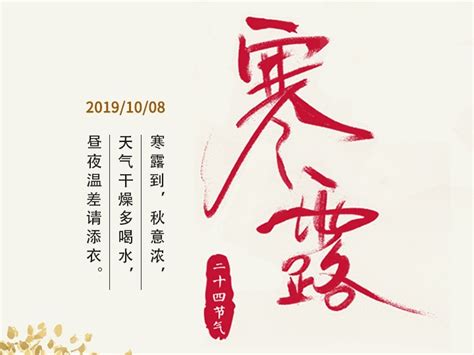 寒露
二十四节气
2019/10/08
寒露到，秋意浓，
天气干燥多喝水，
昼夜温差请添衣。